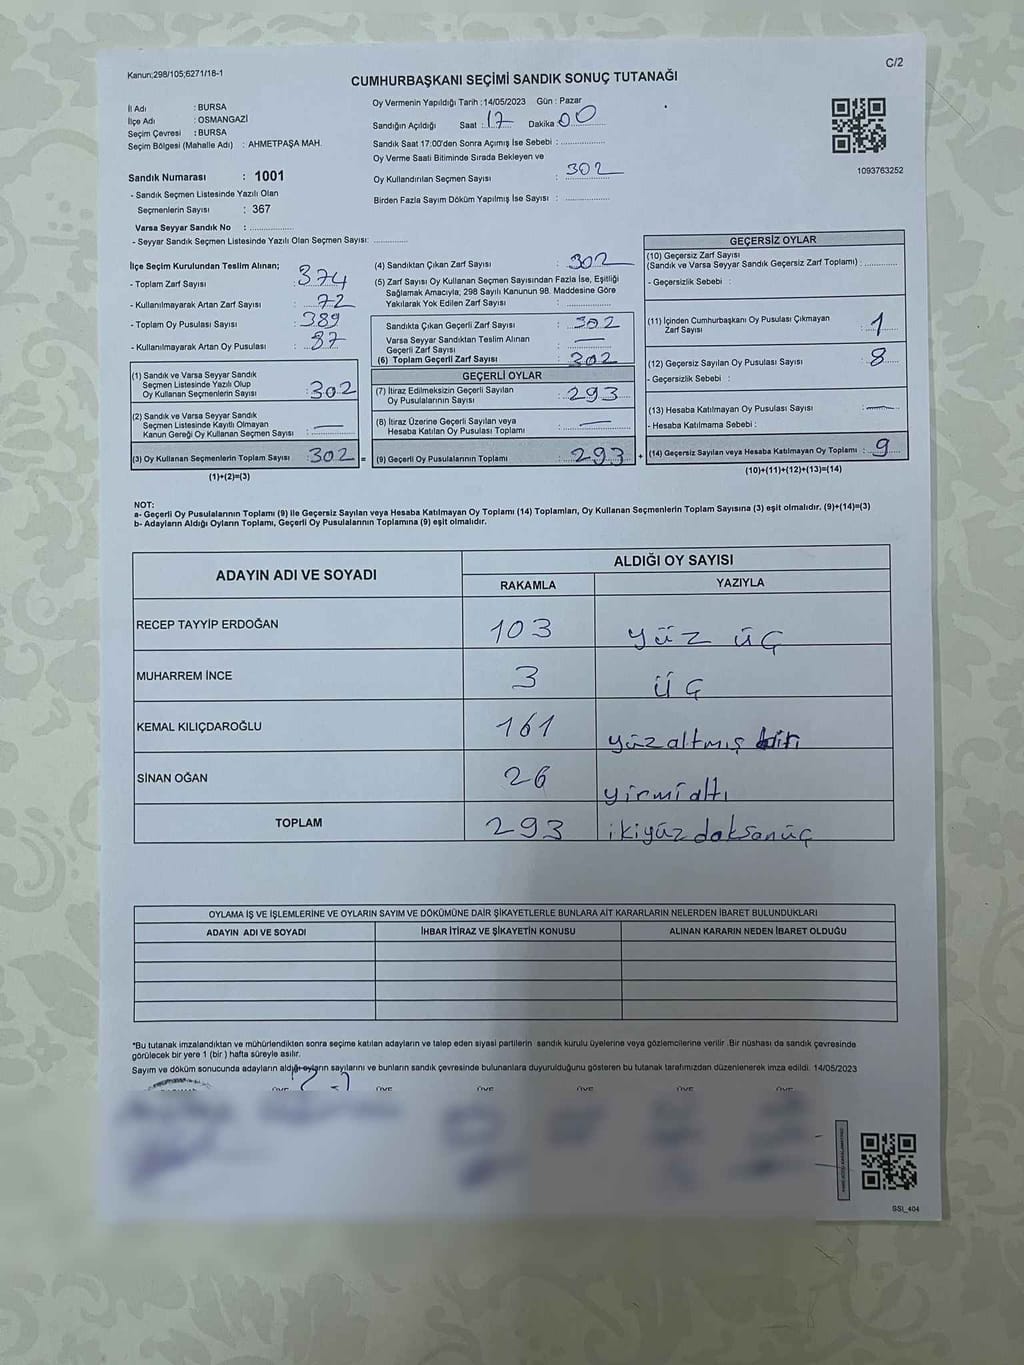 Kanun;298/105;6271/18-1
C/2
CUMHURBAŞKANI SEÇİMİ SANDIK SONUÇ TUTANAĞI
İl Adı : BURSA
İlçe Adı : OSMANGAZİ
Seçim Çevresi : BURSA
Seçim Bölgesi (Mahalle Adı) : AHMETPAŞA MAH.
Sandık Numarası : 1001
- Sandık Seçmen Listesinde Yazılı Olan
Seçmenlerin Sayısı : 367
Varsa Seyyar Sandık No :
- Seyyar Sandık Seçmen Listesinde Yazılı Olan Seçmen Sayısı:
Oy Vermenin Yapıldığı Tarih :14/05/2023 Gün : Pazar
Sandığın Açıldığı Saat : 17 Dakika 00
Sandık Saat 17:00'den Sonra Açımış İse Sebebi :
Oy Verme Saati Bitiminde Sırada Bekleyen ve
Oy Kullandırılan Seçmen Sayısı : 302
Birden Fazla Sayım Döküm Yapılmış İse Sayısı :
1093763252
İlçe Seçim Kurulundan Teslim Alınan;
- Toplam Zarf Sayısı : 374
- Kullanılmayarak Artan Zarf Sayısı : 72
- Toplam Oy Pusulası Sayısı : 389
- Kullanılmayarak Artan Oy Pusulası : 87
(1) Sandık ve Varsa Seyyar Sandık
Seçmen Listesinde Yazılı Olup
Oy Kullanan Seçmenlerin Sayısı : 302
(2) Sandık ve Varsa Seyyar Sandık
Seçmen Listesinde Kayıtlı Olmayan
Kanun Gereği Oy Kullanan Seçmen Sayısı : —
(3) Oy Kullanan Seçmenlerin Toplam Sayısı : 302 =
(1)+(2)=(3)
(4) Sandıktan Çıkan Zarf Sayısı : 302
(5) Zarf Sayısı Oy Kullanan Seçmen Sayısından Fazla İse, Eşitliği
Sağlamak Amacıyla; 298 Sayılı Kanunun 98. Maddesine Göre
Yakılarak Yok Edilen Zarf Sayısı :
Sandıkta Çıkan Geçerli Zarf Sayısı : 302
Varsa Seyyar Sandıktan Teslim Alınan
Geçerli Zarf Sayısı : —
(6) Toplam Geçerli Zarf Sayısı : 302
GEÇERLİ OYLAR
(7) İtiraz Edilmeksizin Geçerli Sayılan
Oy Pusulalarının Sayısı : 293
(8) İtiraz Üzerine Geçerli Sayılan veya
Hesaba Katılan Oy Pusulası Toplamı : —
(9) Geçerli Oy Pusulalarının Toplamı : 293 +
GEÇERSİZ OYLAR
(10) Geçersiz Zarf Sayısı
(Sandık ve Varsa Seyyar Sandık Geçersiz Zarf Toplamı) :
- Geçersizlik Sebebi :
(11) İçinden Cumhurbaşkanı Oy Pusulası Çıkmayan
Zarf Sayısı : 1
(12) Geçersiz Sayılan Oy Pusulası Sayısı : 8
- Geçersizlik Sebebi :
(13) Hesaba Katılmayan Oy Pusulası Sayısı : —
- Hesaba Katılmama Sebebi :
(14) Geçersiz Sayılan veya Hesaba Katılmayan Oy Toplamı : 9
(10)+(11)+(12)+(13)=(14)
NOT:
a- Geçerli Oy Pusulalarının Toplamı (9) ile Geçersiz Sayılan veya Hesaba Katılmayan Oy Toplamı (14) Toplamları, Oy Kullanan Seçmenlerin Toplam Sayısına (3) eşit olmalıdır. (9)+(14)=(3)
b- Adayların Aldığı Oyların Toplamı, Geçerli Oy Pusulalarının Toplamına (9) eşit olmalıdır.
ADAYIN ADI VE SOYADI ALDIĞI OY SAYISI
RAKAMLA YAZIYLA
RECEP TAYYİP ERDOĞAN 103 yüz üç
MUHARREM İNCE 3 üç
KEMAL KILIÇDAROĞLU 161 yüzaltmış biri
SİNAN OĞAN 26 yirmialtı
TOPLAM 293 ikiyüz doksanüç
OYLAMA İŞ VE İŞLEMLERİNE VE OYLARIN SAYIM VE DÖKÜMÜNE DAİR ŞİKAYETLERLE BUNLARA AİT KARARLARIN NELERDEN İBARET BULUNDUKLARI
ADAYIN ADI VE SOYADI İHBAR İTİRAZ VE ŞİKAYETİN KONUSU ALINAN KARARIN NEDEN İBARET OLDUĞU
*Bu tutanak imzalandıktan ve mühürlendikten sonra seçime katılan adayların ve talep eden siyasi partilerin sandık kurulu üyelerine veya gözlemcilerine verilir .Bir nüshası da sandık çevresinde
görülecek bir yere 1 (bir ) hafta süreyle asılır.
Sayım ve döküm sonucunda adayların aldığı oyların sayılarını ve bunların sandık çevresinde bulunanlara duyurulduğunu gösteren bu tutanak tarafımızdan düzenlenerek imza edildi. 14/05/2023
ÜYE ÜYE ÜYE ÜYE ÜYE ÜYE
SSI_404